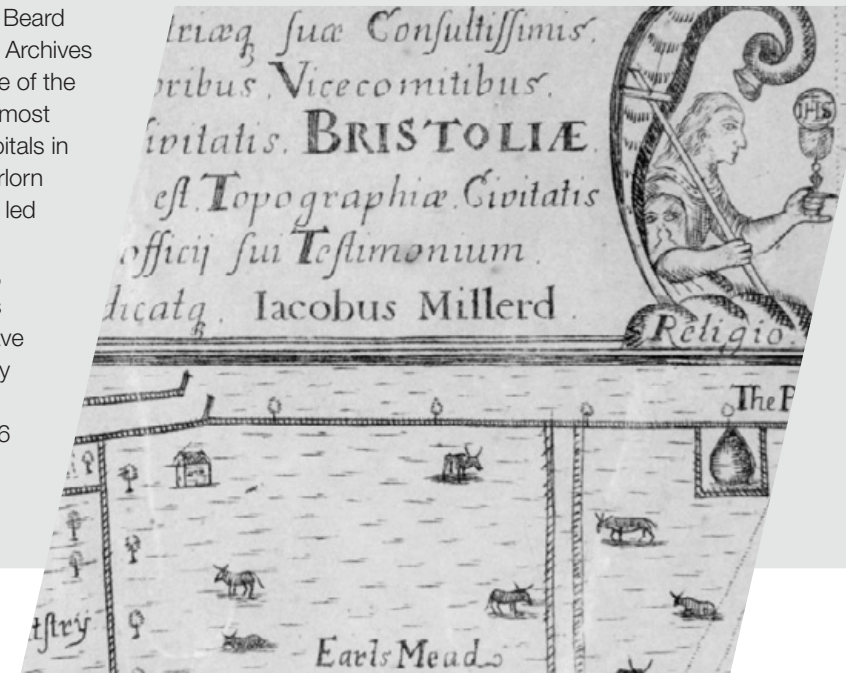 Beard
Archives
e of the
most
pitals in
rlorn
led
ve
y
6
triæq ſuæ Conſultiſſimis.
oribus. Vicecomitibus.
Civitatis. BRISTOLIÆ
eſt. Topographiæ. Civitatis
officij ſui Teſtimonium.
dicatq. Iacobus Millerd.
IHS
Religio.
The P
Earls Mead